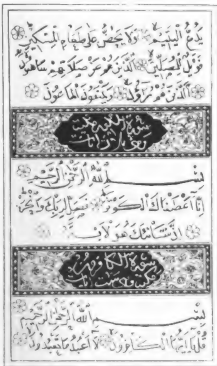 يَدُعُّ الْيَتِيمَ وَلَا يَحُضُّ عَلَىٰ طَعَامِ الْمِسْكِينِ
فَوَيْلٌ لِلْمُصَلِّينَ الَّذِينَ هُمْ عَنْ صَلَاتِهِمْ سَاهُونَ
الَّذِينَ هُمْ يُرَاؤُنَ وَيَمْنَعُونَ الْمَاعُونَ
سورة
بِسْمِ اللَّهِ الرَّحْمَٰنِ الرَّحِيمِ
إِنَّا أَعْطَيْنَاكَ الْكَوْثَرَ فَصَلِّ لِرَبِّكَ وَانْحَرْ
إِنَّ شَانِئَكَ هُوَ الْأَبْتَرُ
سورة الكافرون
بِسْمِ اللَّهِ الرَّحْمَٰنِ الرَّحِيمِ
قُلْ يَا أَيُّهَا الْكَافِرُونَ لَا أَعْبُدُ مَا تَعْبُدُونَ